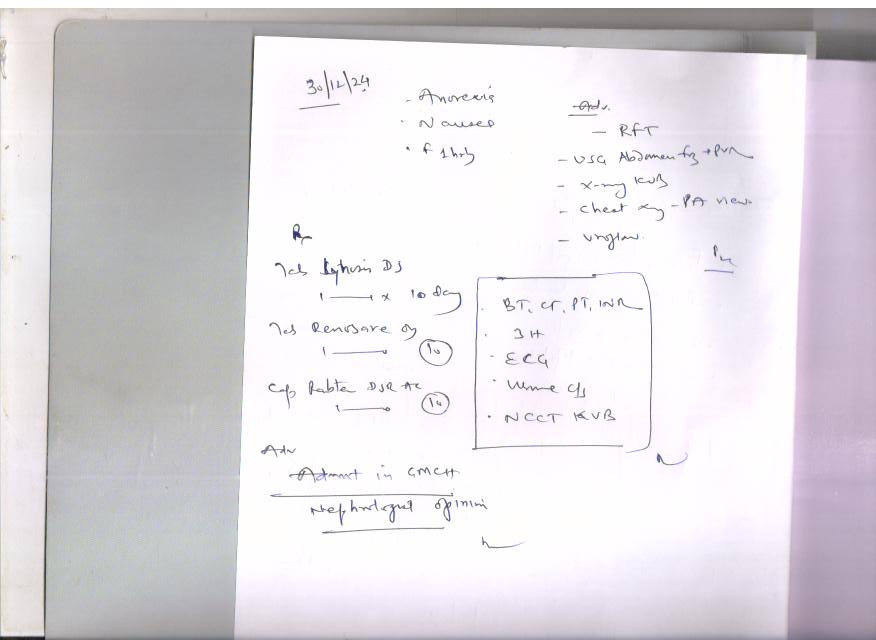 30/12/24
- Anorexia
- Nausea
Adv.
- RFT
- USG Abdomen + PVR
- X-ray KUB
- Chest Xray - PA view
- Uroflow
Rx
Tab DS
1 —— x 10 day
Tab Renosave
1 —— 10
Cap Rabta DSR AC
1 —— 10
BT, CT, PT, INR
ECG
Urine c/s
NCCT KUB
Adv
Admit in GMCH
Nephrologist opinion